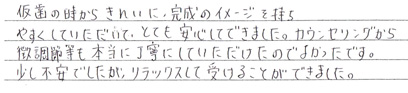 仮歯の時からきれいに、完成のイメージを持ち
やすくしていただいて、とても安心してできました。カウンセリングから
微調節等も本当に丁寧にしていただけたのでよかったです。
少し不安でしたが、リラックスして受けることができました。